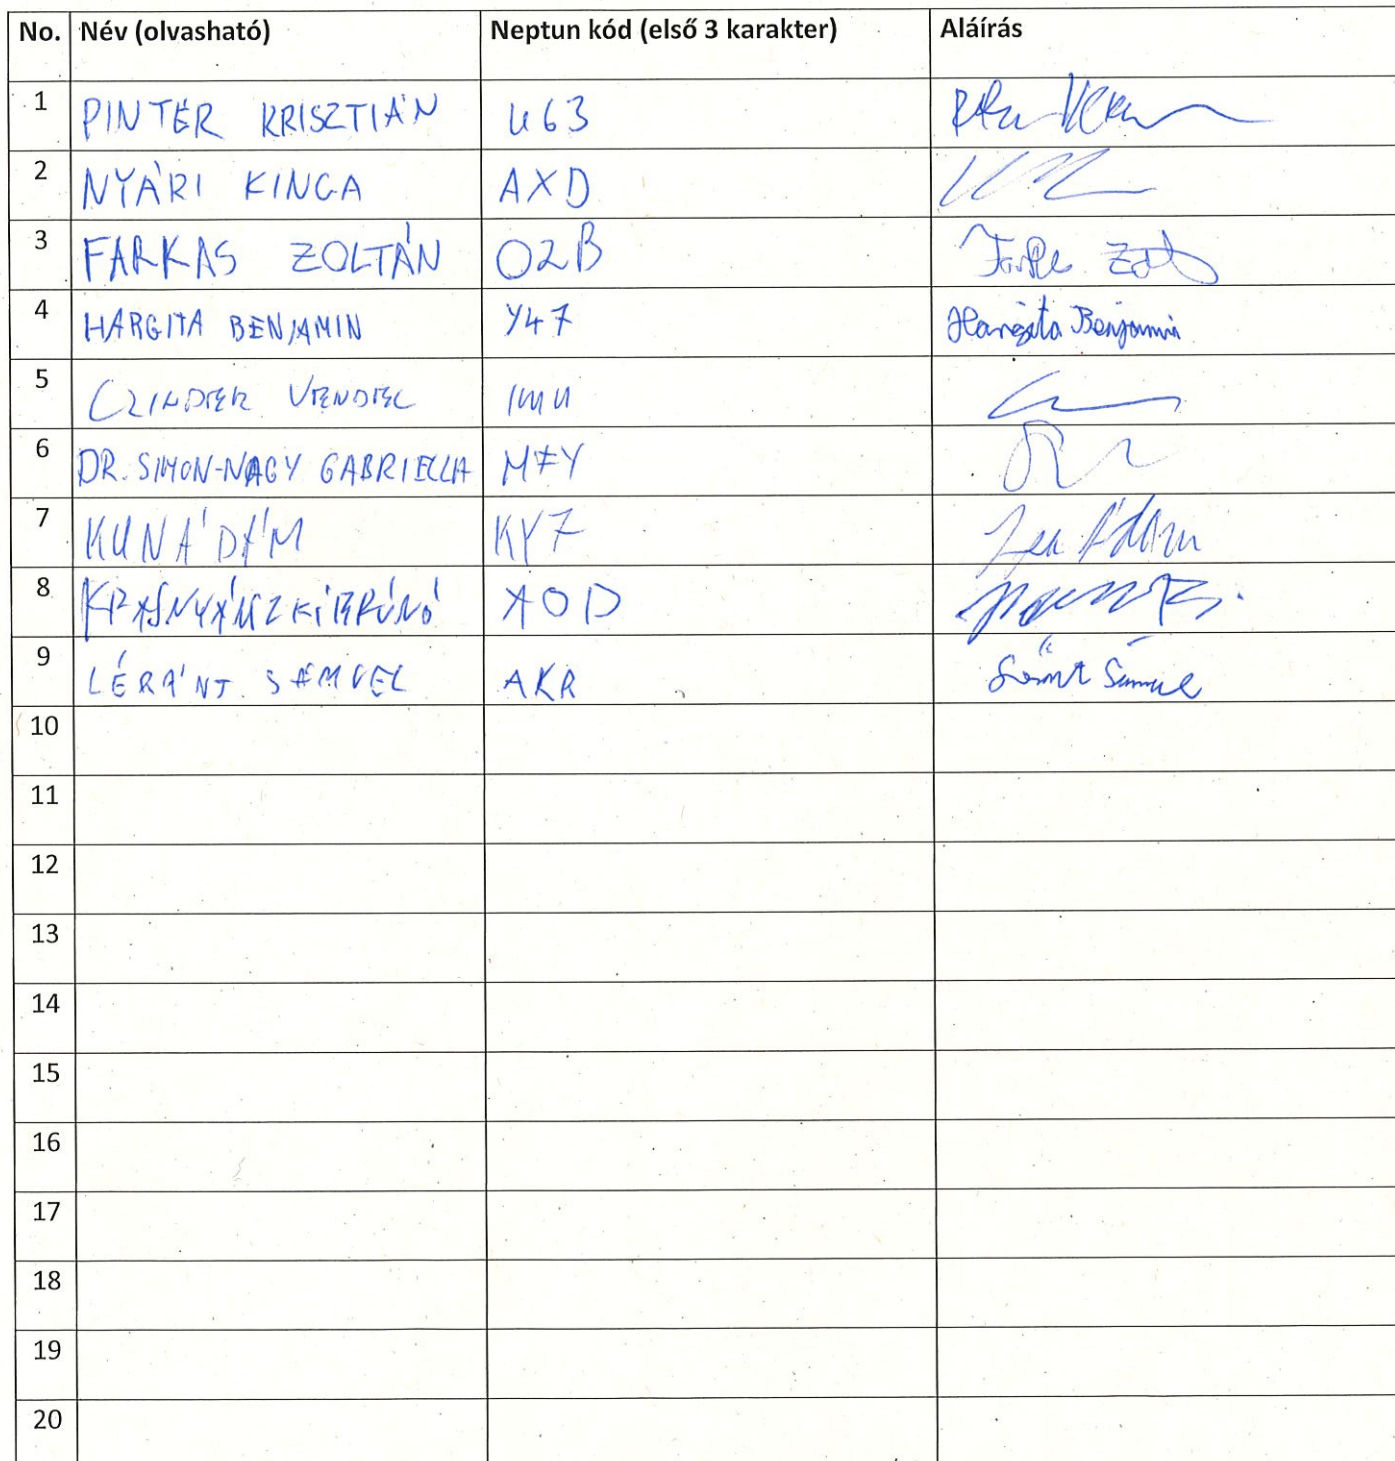 No. Név (olvasható) Neptun kód (első 3 karakter) Aláírás
1 PINTÉR KRISZTIÁN U63
2 NYÁRI KINGA AXD
3 FARKAS ZOLTÁN O2B Farkas Zolt
4 HARGITA BENJAMIN Y47 Hargita Benjamin
5 CZINDER VENDEL IMU
6 DR. SIMON-NAGY GABRIELLA M7Y
7 KUN ÁDÁM KY7 Kun Ádám
8 AOD
9 LÉRÁNT SÁMUEL AKR Léránt Sámuel
10
11
12
13
14
15
16
17
18
19
20